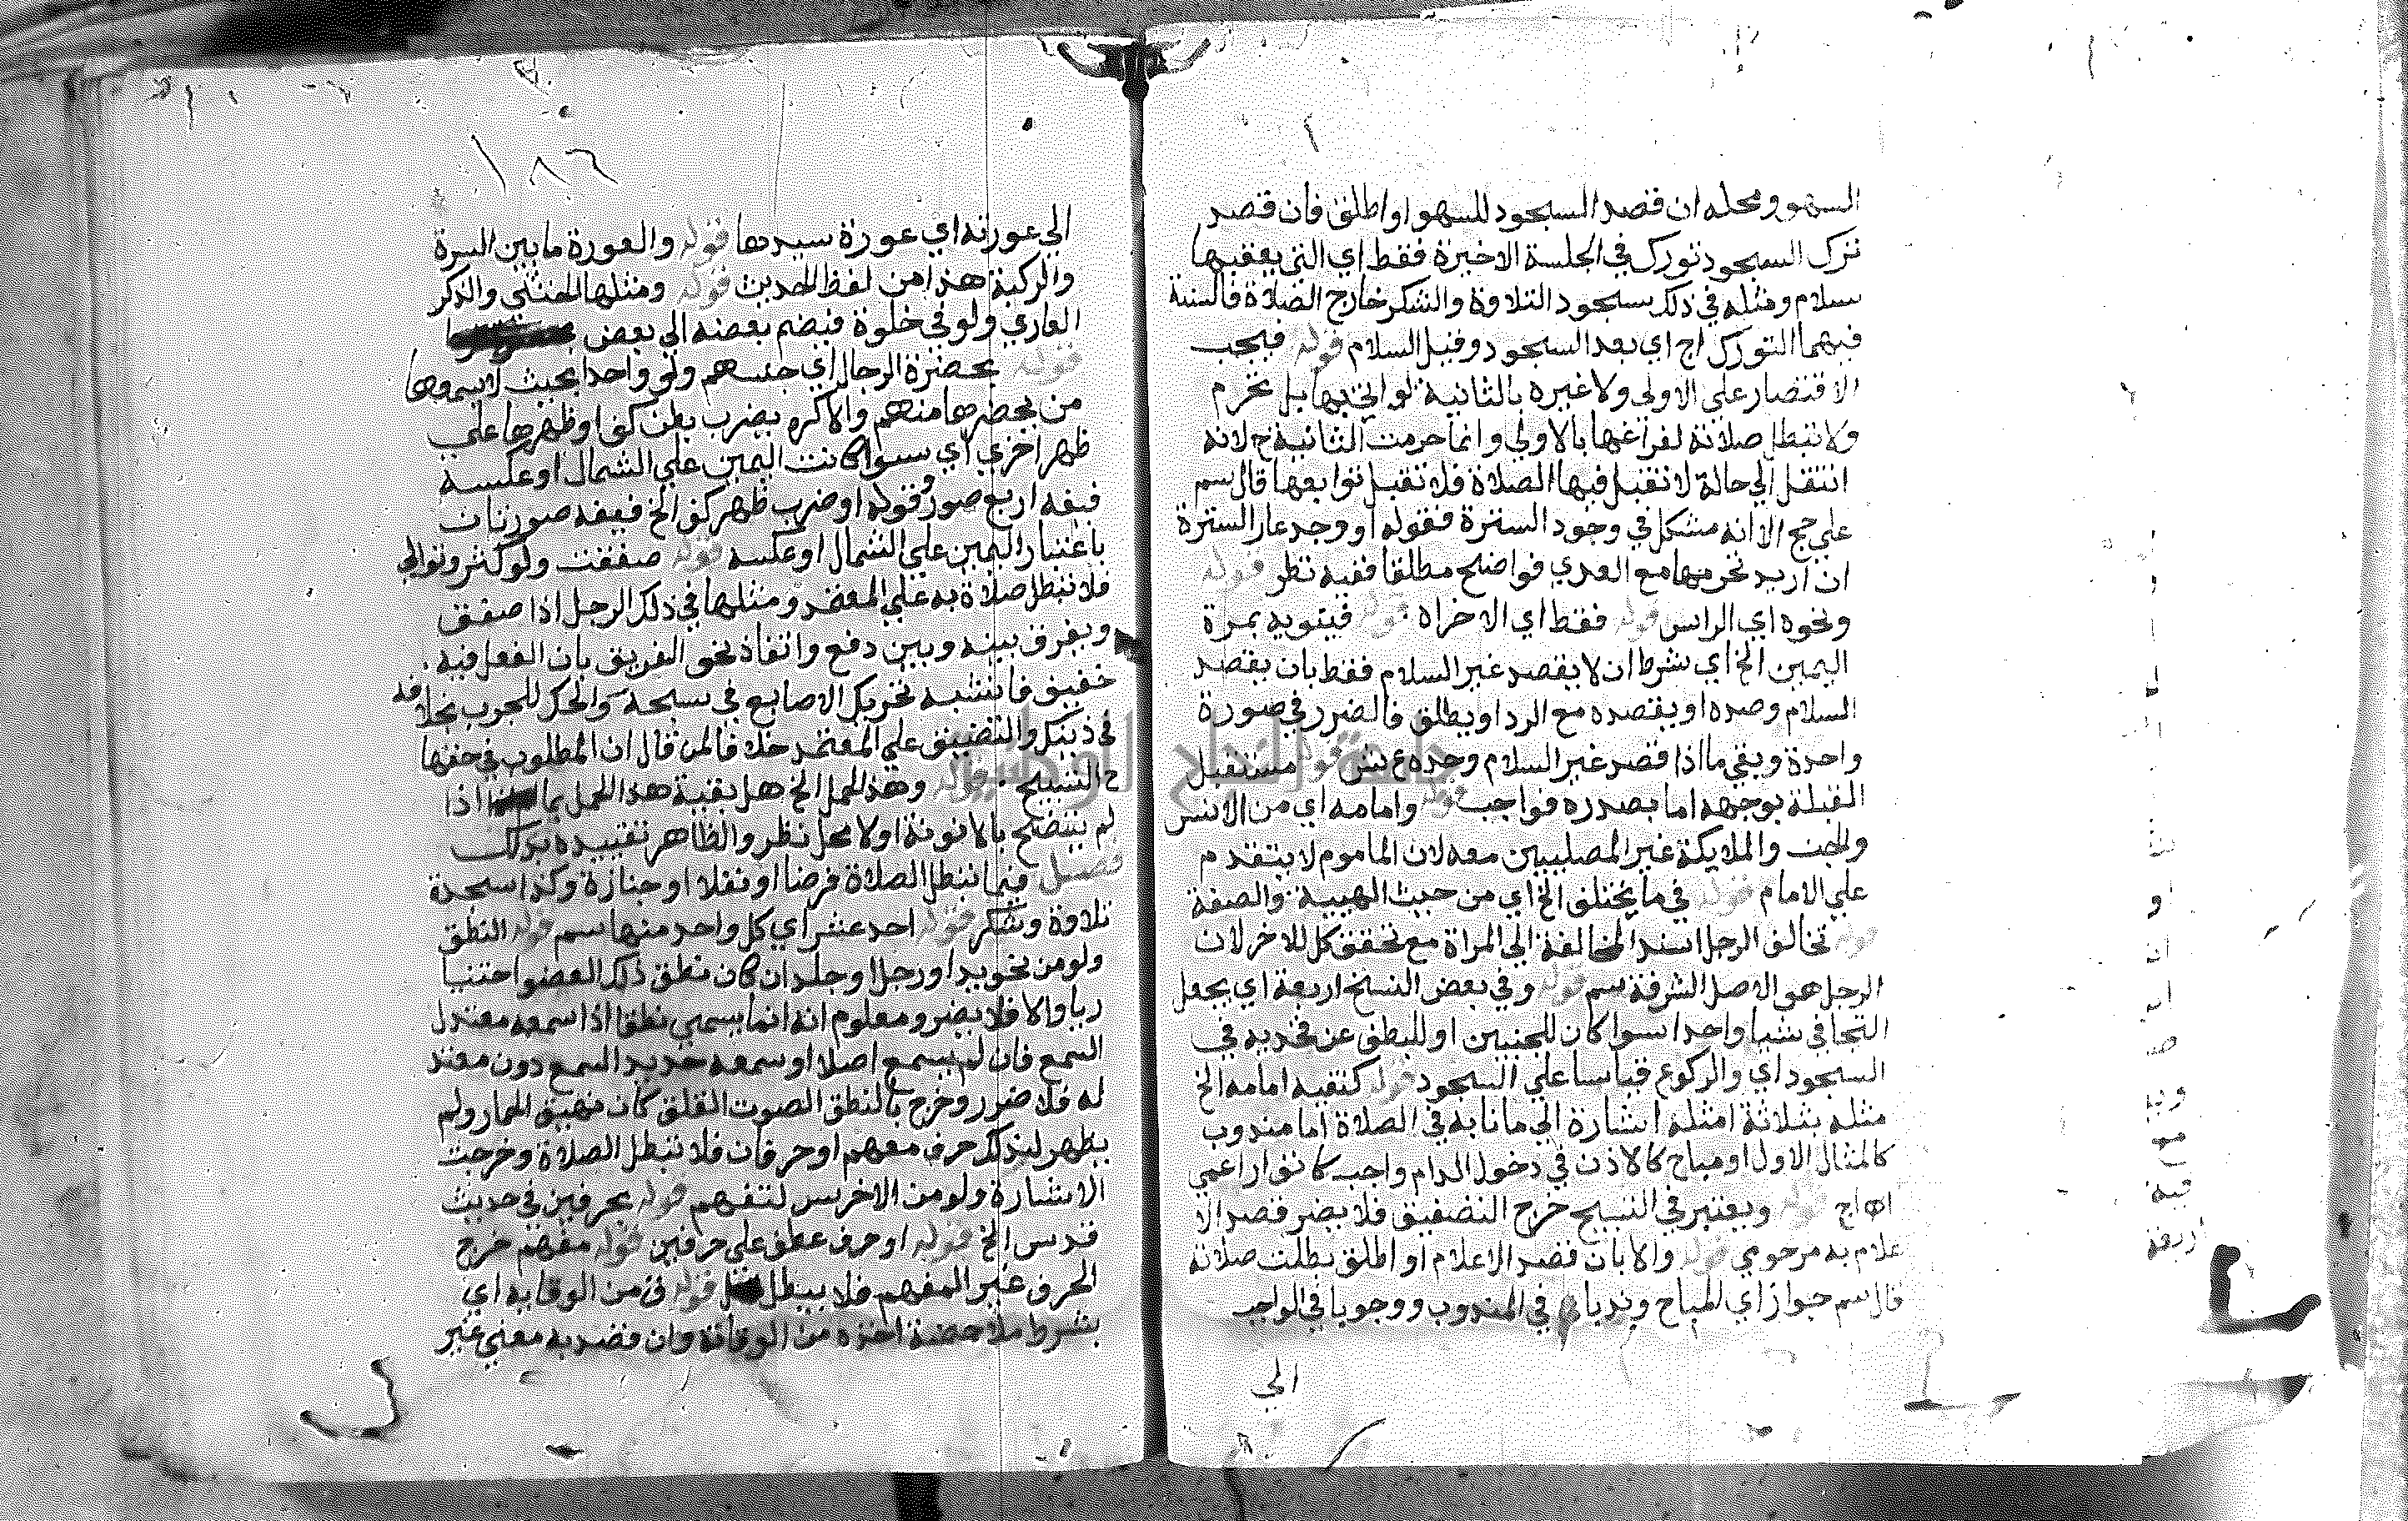 السهو ومحله ان قصد السجود للسهو او اطلق فان قصد
ترك السجود تورك في الجلسة الاخيرة فقط اي التي يعقبها
سلام ومثله في ذلك سجود التلاوة والشكر خارج الصلاة فالسنة
فيهما التورك اج اي بعد السجود وقبل السلام قوله فيجب
الاقتصار على الاولى ولا غيره بالثانية لو اتي بها بل تحرم
ولا تبطل صلاته لفراغها بالاولي وانما حرمت الثانية ح لانه
انتقل الي حالة لا تقبل فيها الصلاة فلا تقبل توابعها قال سم
علي حج الا انه مشكل في وجود السترة فقوله او وجد عار السترة
ان اريد تحرمها مع العدي فواضح مطلقا ففيه نظر قوله
ونحوه اي الراس قوله فقط اي الاخراه قوله فينويه بمرة
اليمين الخ اي بشرط ان لا يقصد غير السلام فقط بان يقصد
السلام وصده او يقصده مع الرد او يطلق فالضرر في صورة
واحدة وبقي ما اذا قصد غير السلام وحده ع ش قوله مستقبل
القبلة بوجهه اما بصدره فواجب قوله وامامه اي من الانس
والجن والملايكة غير المصليين معه لان الماموم لا يتقدم
علي الامام قوله في ما يختلف الخ اي من حيث الهيية والصفة
قوله تخالف الرجل اسند المخالفة الي المراة مع تحقق كل للاخر لان
الرجل هو الاصل الشرفة سم قوله وفي بعض النسخ اربعة اي يجعل
التجافي شيا واحدا سوا كان للجنبين او للبطن عن فخديه في
السجود اي والركوع قياسا علي السجود قوله كتقيه امامه الخ
مثله بثلاثة امثله اشارة الي ما نابه في الصلاة اما مندوب
كالمثال الاول او مباح كالاذن في دخول الدام واجب كانقوار اعمي
اه اج قوله ويعتبر في التسبيح خرج التصفيق فلا يضر قصد الا
علام به مرحومي قوله والا بان قصد الاعلام او اطلق بطلت صلاته
قال سم جواز اي المباح وندبا في المندوب ووجوبا في الواجب
الي
١٨٦
الي عورته اي عورة سيدها قوله والعورة ما بين السرة
والركبة هذا من لفظ الحديث قوله ومثلها الخنثي والذكر
العاري ولو في خلوة فيضم بعضه الي بعض
قوله بحضرة الرجال اي جنسهم ولو واحدا بحيث لا يسموها
من يحضرها منهم والا كره بضرب بطن كف او ظهرها علي
ظهر اخري اي سوا كانت اليمين علي الشمال او عكسه
ففيه اربع صور وقوله او ضرب ظهر كف الخ ففيه صورتان
باعتبار اليمين علي الشمال او عكسه قوله صفقت ولو كثر وتوالي
فلا تبطل صلاة به علي المعتمد ومثلها في ذلك الرجل اذا صفق
ويفرق بينه وبين دفع وانقاذ نحو الغريق بان الفعل فيه
خفيف فاشبه تحريك الاصابع في سبحة والحك للجرب بخلافه
في ذينك والتصفيق علي المعتمد خلافا لمن قال ان المطلوب في حقها
ح التسبيح قوله وهذا المحمل الخ هل بقية هذا المحمل اذا
لم يتضح بالانوثة اولا محل نظر والظاهر تقييده بذلك
فصل فيما تبطل الصلاة فرضا او نفلا او جنازة وكذا سجدة
تلاوة وشكر قوله احد عشر اي كل واحد منها سم قوله النطق
ولو من نحو يد او رجل او جلد ان كان نطق ذلك العضو احتنيا
ريا والا فلا يضر ومعلوم انه انما يسمي نطقا اذا سمعه معتدل
السمع فان لم يسمع اصلا او سمعه حديد السمع دون معتد
له فلا ضرر وخرج بالنطق الصوت الغلق كان نهيق الحمار ولم
يظهر لذلك حرف مفهم او حرفان فلا تبطل الصلاة وخرجت
الاشارة ولو من الاخرس لتفهم قوله بحرفين في حديث
قدس الخ قوله او حرف عطف علي حرفين قوله مفهم خرج
الحرف غير المفهم فلا يبطل قوله ق من الوقاية اي
بشرط ملاحضة اخذه من الوقاية وان قصد به معني غير